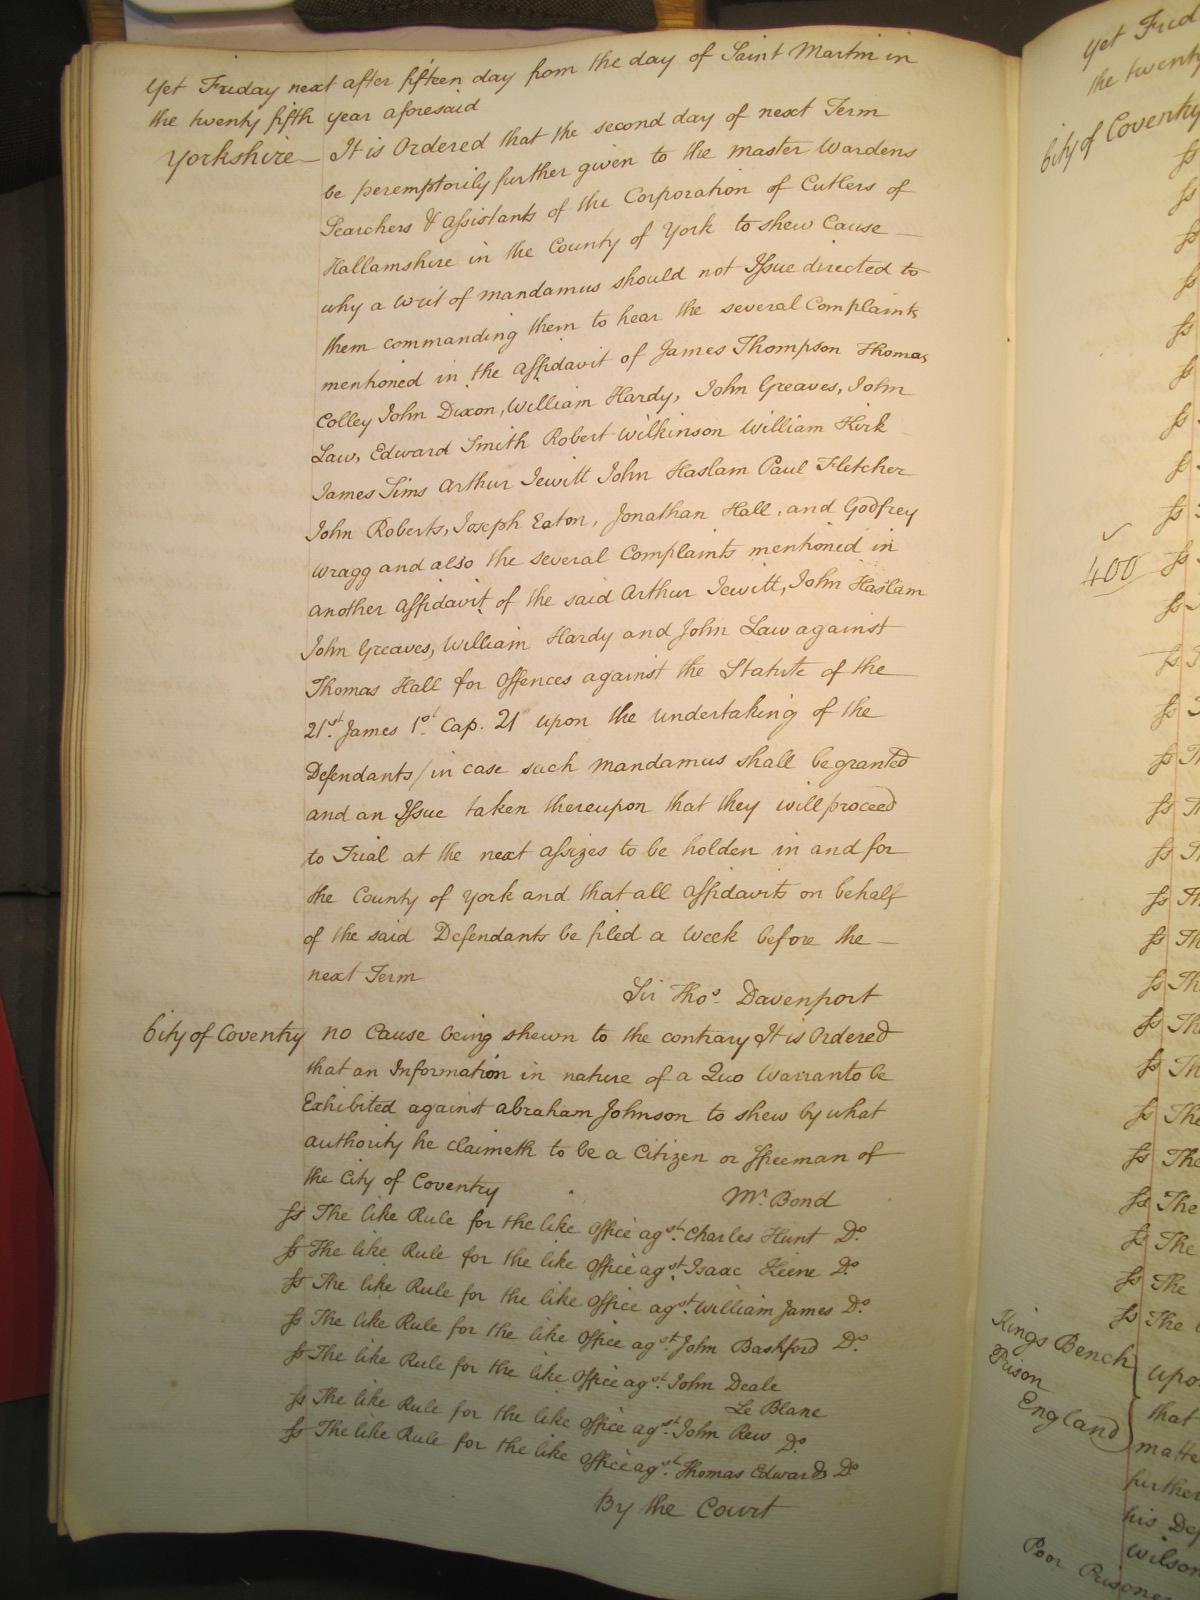 Yet Friday next after fifteen day from the day of Saint Martin in
the twenty fifth year aforesaid
Yorkshire — It is Ordered that the second day of next Term
be peremptorily further given to the master Wardens
Searchers & Assistants of the Corporation of Cutlers of
Hallamshire in the County of York to shew Cause —
why a Writ of mandamus should not Issue directed to
them commanding them to hear the several Complaints
mentioned in the Affidavit of James Thompson Thomas
Colley John Dixon, William Hardy, John Greaves, John
Law, Edward Smith Robert Wilkinson William Kirk
James Sims Arthur Jewitt John Haslam Paul Fletcher
John Roberts, Joseph Eaton, Jonathan Hall, and Godfrey
Wragg and also the several Complaints mentioned in
another Affidavit of the said Arthur Jewitt, John Haslam
John Greaves, William Hardy and John Law against
Thomas Hall for Offences against the Statute of the
21st. James 1st. Cap. 21 upon the undertaking of the
Defendants / in case such mandamus shall be granted
and an Issue taken thereupon that they will proceed
to Trial at the next Assizes to be holden in and for
the County of York and that all Affidavits on behalf
of the said Defendants be filed a Week before the —
next Term
Sir Thos. Davenport
City of Coventry no Cause being shewn to the contrary It is Ordered
that an Information in nature of a Quo Warranto be
Exhibited against Abraham Johnson to shew by what
authority he claimeth to be a Citizen or Freeman of
the City of Coventry
Mr. Bond
Ss The like Rule for the like Office agst. Charles Hunt Do.
Ss The like Rule for the like Office agst. Isaac Keene Do.
Ss The like Rule for the like Office agst. William James Do.
Ss The like Rule for the like Office agst. John Bashford Do.
Ss The like Rule for the like Office agst. John Deale
Le Blanc
Ss The like Rule for the like Office agst. John Rew Do.
Ss The like Rule for the like Office agst. Thomas Edwards Do
By the Court
Yet Frid
the twenty
City of Coventry
Ss
Ss
Ss
Ss
Ss
Ss
Ss
Ss
Ss
400 Ss
Ss
Ss T
Ss
Ss Th
Ss Th
Ss Th
Ss Th
Ss Th
Ss Th
Ss Th
Ss Th
Ss The
Ss The
Ss The
Ss The
Ss The
Ss The
Kings Bench
Prison
England
upo
that
matte
further
his Def
Wilson
Poor Prisone